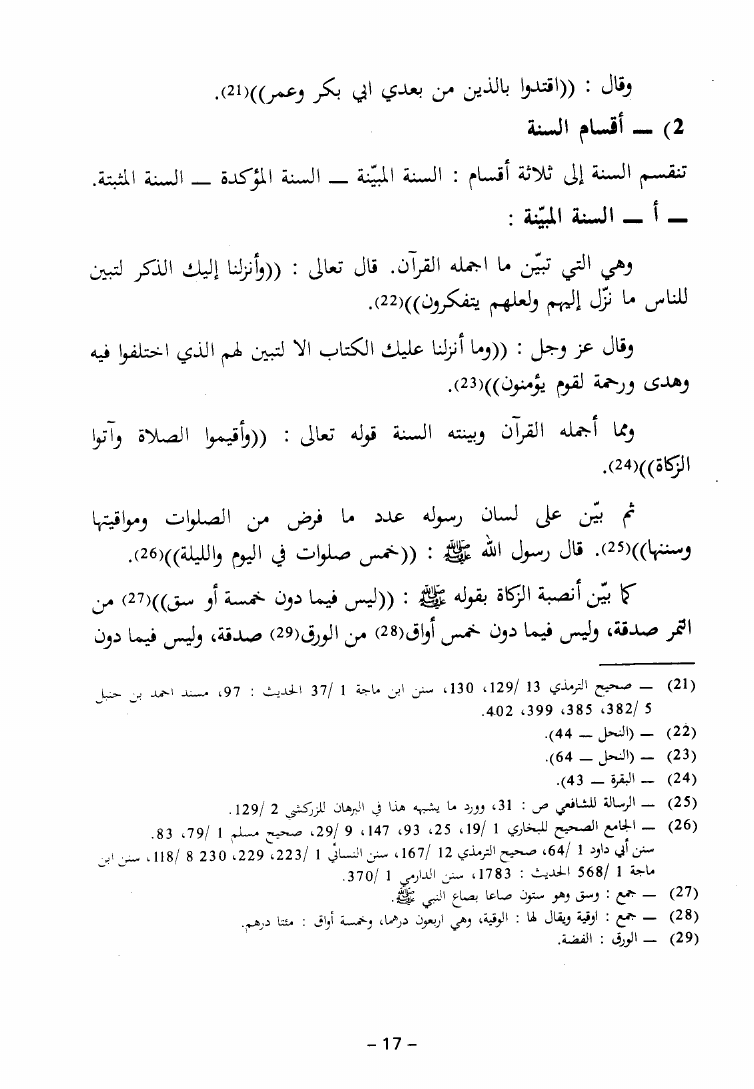 وقال : ((اقتدوا بالذين من بعدي ابي بكر وعمر))(21).
2) ــ أقسام السنة
تنقسم السنة إلى ثلاثة أقسام : السنة المبيّنة ــ السنة المؤكدة ــ السنة المثبتة.
ــ أ ــ السنة المبيّنة :
وهي التي تبيّن ما اجمله القرآن. قال تعالى : ((وأنزلنا إليك الذكر لتبين
للناس ما نزّل إليهم ولعلهم يتفكرون))(22).
وقال عز وجل : ((وما أنزلنا عليك الكتاب الا لتبين لهم الذي اختلفوا فيه
وهدى ورحمة لقوم يؤمنون))(23).
ومما أجمله القرآن وبينته السنة قوله تعالى : ((وأقيموا الصلاة وآتوا
الزكاة))(24).
ثم بيّن على لسان رسوله عدد ما فرض من الصلوات ومواقيتها
وسننها))(25). قال رسول الله ﷺ : ((خمس صلوات في اليوم والليلة))(26).
كما بيّن أنصبة الزكاة بقوله ﷺ : ((ليس فيما دون خمسة أو سق))(27) من
التمر صدقة، وليس فيما دون خمس أواق(28) من الورق(29) صدقة، وليس فيما دون
(21) ــ صحيح الترمذي 13 /129، 130، سنن ابن ماجة 1 /37 الحديث : 97، مسند احمد بن حنبل
5 /382، 385، 399، 402.
(22) ــ (النحل ــ 44).
(23) ــ (النحل ــ 64).
(24) ــ البقرة ــ 43).
(25) ــ الرسالة للشافعي ص : 31، وورد ما يشبه هذا في البرهان للزركشي 2 /129.
(26) ــ الجامع الصحيح للبخاري 1 /19، 25، 93، 147، 9 /29، صحيح مسلم 1 /79، 83.
سنن أبي داود 1 /64، صحيح الترمذي 12 /167، سنن النسائي 1 /223، 229، 230 8 /118، سنن ابن
ماجة 1 /568 الحديث : 1783، سنن الدارمي 1 /370.
(27) ــ جمع : وسق وهو ستون صاعا بصاع النبي ﷺ.
(28) ــ جمع : اوقية ويقال لها : الوقية، وهي اربعون درهما، وخمسة أواق : مئتا درهم.
(29) ــ الورق : الفضة.
– 17 –